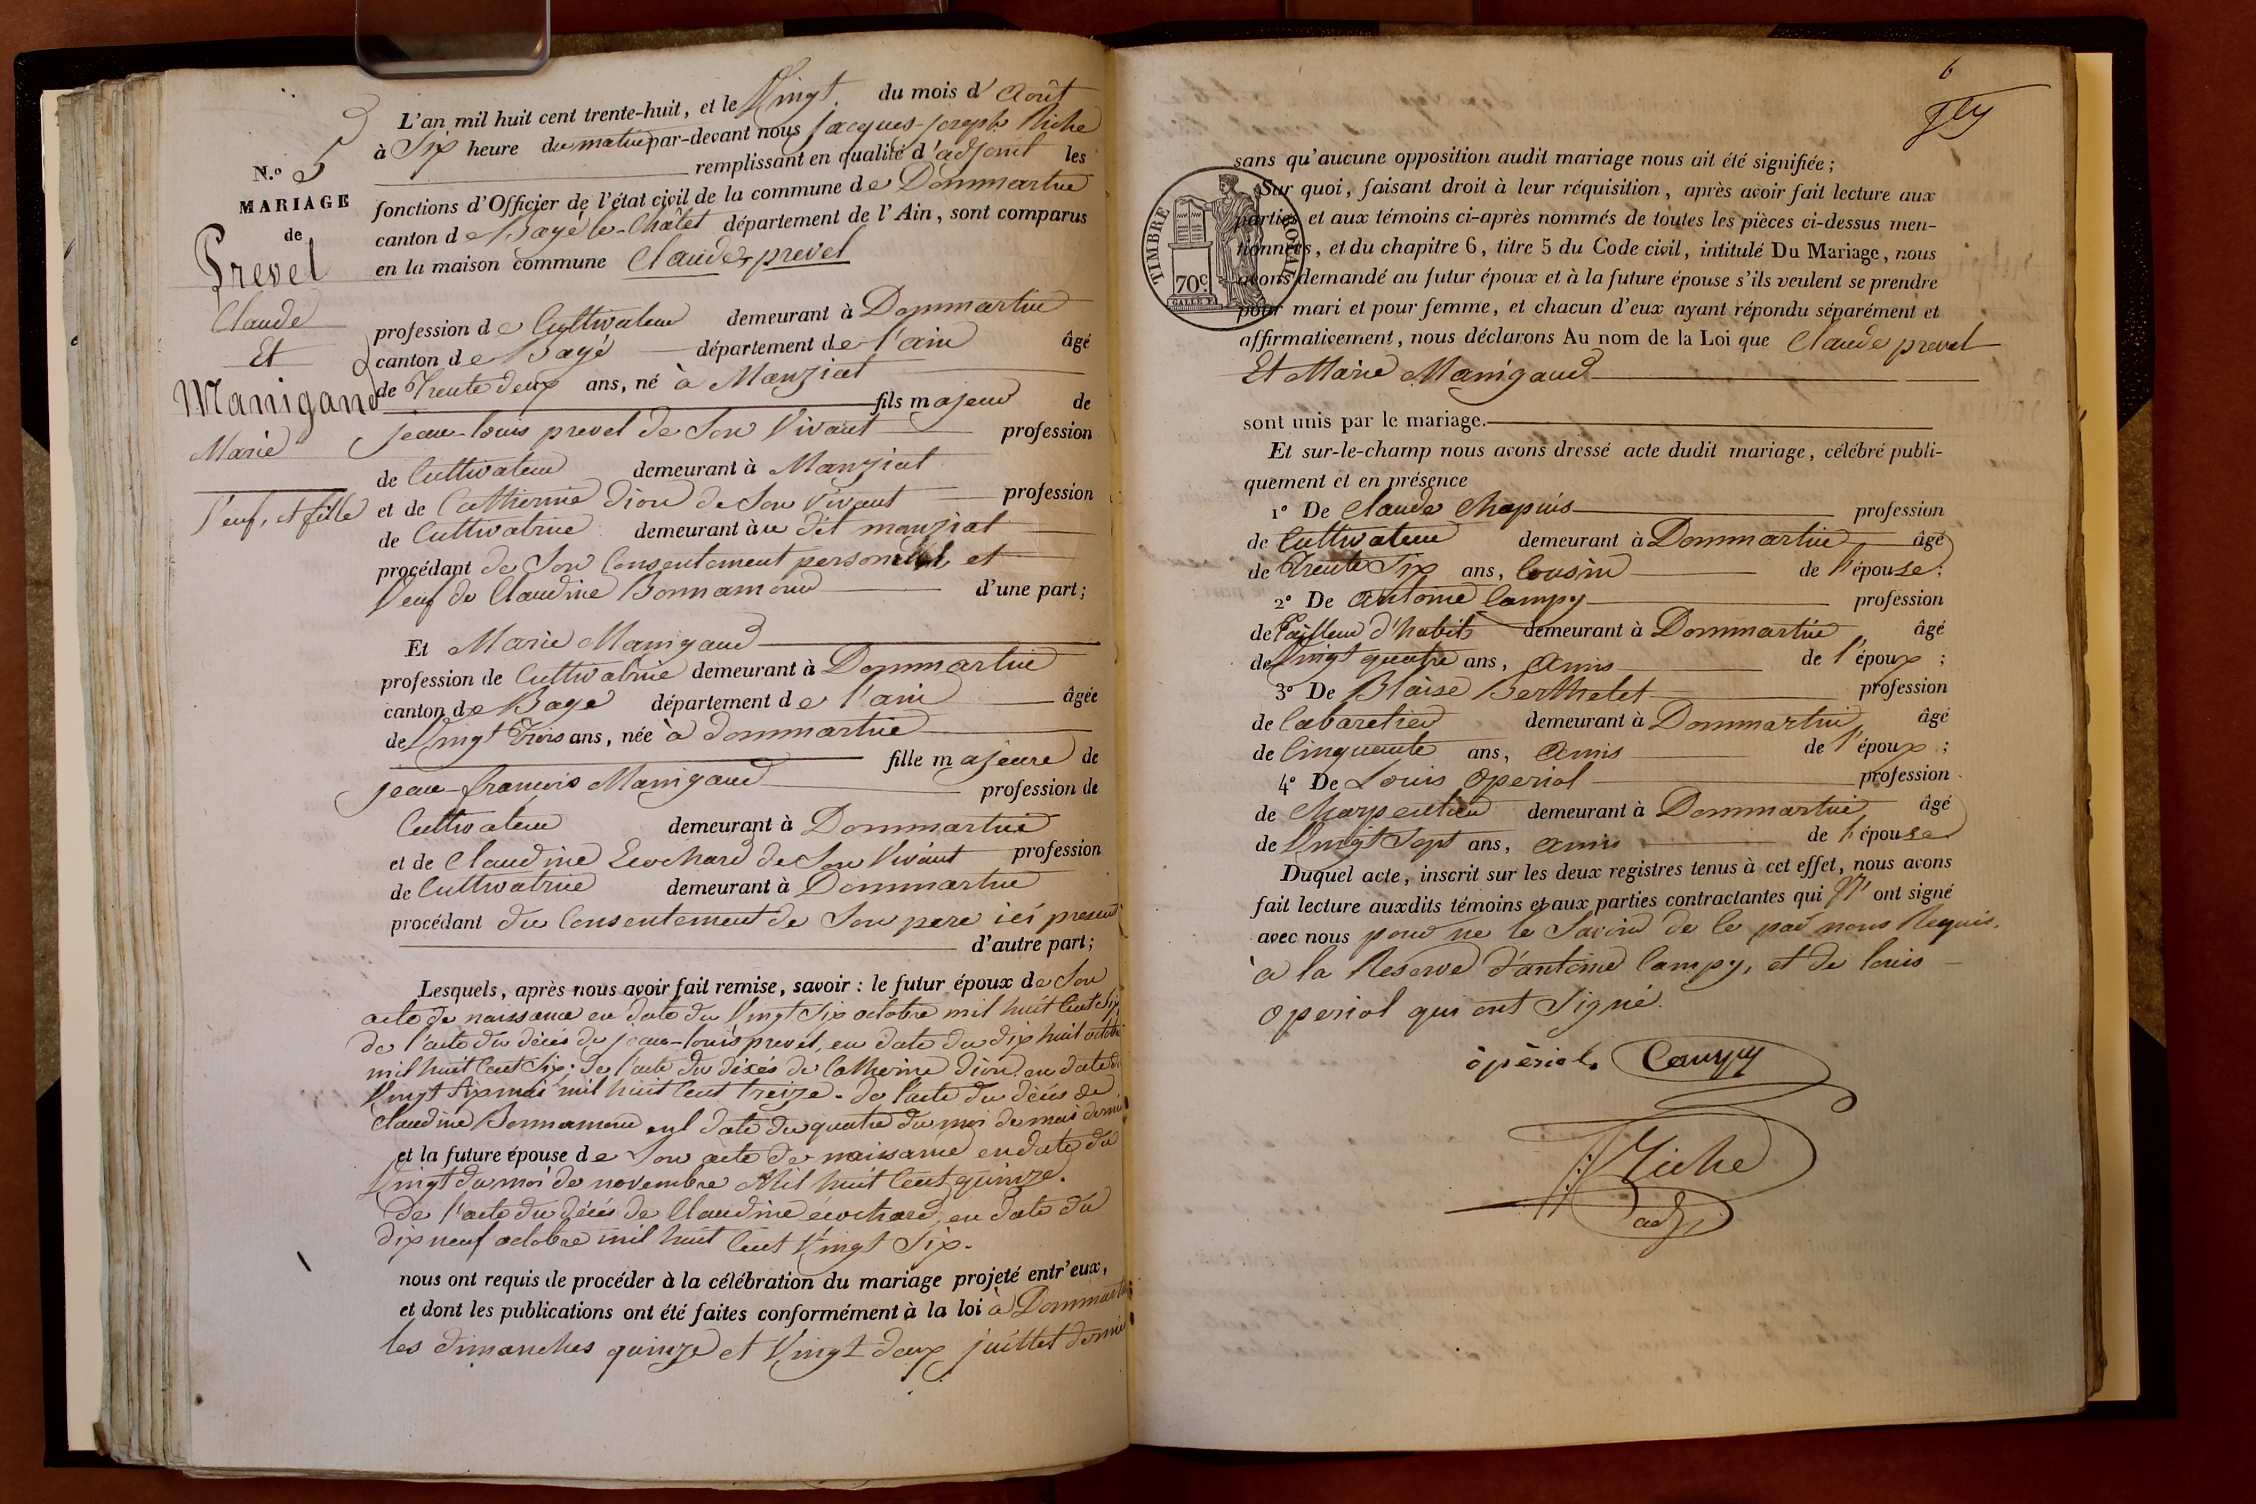 N.º 5
MARIAGE
de
Prevel
Claude
Et
Manigand
Marie
Veuf, et fille
L'an mil huit cent trente-huit, et le Vingt. du mois d'Août
à Six heure du matin par-devant nous jacques-joseph Riche
remplissant en qualité d'adjoint les
fonctions d'Officier de l'état civil de la commune de Dommartin
canton de Bagé le-Châtel département de l'Ain, sont comparus
en la maison commune Claude prevel
profession de Cultivateur demeurant à Dommartin
canton de Bagé département de l'ain âgé
de Trente deux ans, né à Manziat
fils majeur de
jean-louis prevel de Son Vivant profession
de Cultivateur demeurant à Manziat
et de Catherine Dion de Son Vivant profession
de Cultivatrice demeurant au dit manziat
procédant de Son Consentement personnel, et
Veuf de Claudine Bonnamour d'une part;
Et Marie Manigaud
profession de Cultivatrice demeurant à Dommartin
canton de Bagé département de l'ain âgée
de Vingt Trois ans, née à Dommartin
fille majeure de
jean-francois Manigaud profession de
Cultivateur demeurant à Dommartin
et de Claudine Ecochard de Son Vivant profession
de Cultivatrice demeurant à Dommartin
procédant du Consentement de Son pere ici present
d'autre part;
Lesquels, après nous avoir fait remise, savoir : le futur époux de Son
acte de naissance en date du Vingt Six octobre mil huit Cent Six,
de l'acte du décès de jean-louis prevel, en date du dix huit octobre
mil huit Cent Six; de l'acte du décés de Catherine Dion, en date du
Vingt Six mai mil huit Cent treize. de l'acte du décés de
Claudine Bonnamour en date du quatre du moi de mars dernier
et la future épouse de Son acte de naissance en date du
Vingt du moi de novembre Mil huit Cent quinze.
de l'acte du décés de Claudine écochard, en date du
dix neuf octobre mil huit Cent Vingt Six.
nous ont requis de procéder à la célébration du mariage projeté entr'eux,
et dont les publications ont été faites conformément à la loi à Dommartin
les dimanches quinze et Vingt-deux juillet dernier
6
TIMBRE ROYAL
70c.
sans qu'aucune opposition audit mariage nous ait été signifiée;
Sur quoi, faisant droit à leur réquisition, après avoir fait lecture aux
parties et aux témoins ci-après nommés de toutes les pièces ci-dessus men-
tionnées, et du chapitre 6, titre 5 du Code civil, intitulé Du Mariage, nous
avons demandé au futur époux et à la future épouse s'ils veulent se prendre
pour mari et pour femme, et chacun d'eux ayant répondu séparément et
affirmativement, nous déclarons Au nom de la Loi que Claude prevel
Et Marie Manigaud
sont unis par le mariage.
Et sur-le-champ nous avons dressé acte dudit mariage, célébré publi-
quement et en présence
1º De Claude Chapuis profession
de Cultivateur demeurant à Dommartin âgé
de Trente Six ans, Cousin de l'épouse;
2º De antoine Campy profession
de Tailleur d'habits demeurant à Dommartin, âgé
de Vingt quatre ans, amis de l'époux;
3º De Blaise Berthelet profession
de Cabaretier demeurant à Dommartin, âgé
de Cinquante ans, amis de l'époux;
4º De Louis Operiol profession
de Charpentier demeurant à Dommartin, âgé
de Vingt Sept ans, amis de l'épouse
Duquel acte, inscrit sur les deux registres tenus à cet effet, nous avons
fait lecture auxdits témoins et aux parties contractantes qui N'ont signé
avec nous pour ne le Savoir de ce par nous Requis,
à la Reserve d'antoine Campy, et de louis
Operiol qui ont Signé.
opèriol. Campy
Riche
adj.